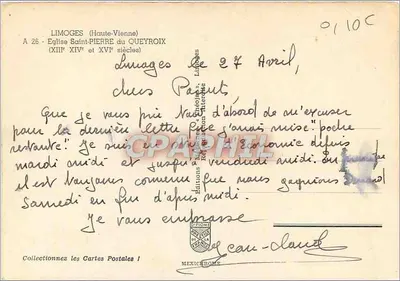 LIMOGES (Haute-Vienne)
A 26 - Eglise Saint-PIERRE du QUEYROIX
(XIIIe XIVe et XVIe siècles)
0,10C
Limoges le 27 Avril,
chers Parents
Que je vous prie tout d'abord de m'excuser
pour la dernière lettre que j'avais mise "poste
restante". Je suis en Economie depuis
mardi midi et jusqu'à vendredi midi. En principe
il est toujours convenu que nous gagnions
Samedi en fin d'après midi.
Je vous embrasse
Jean-Claude
CPAPHIL
Collectionnez les Cartes Postales !
MEXICHROME